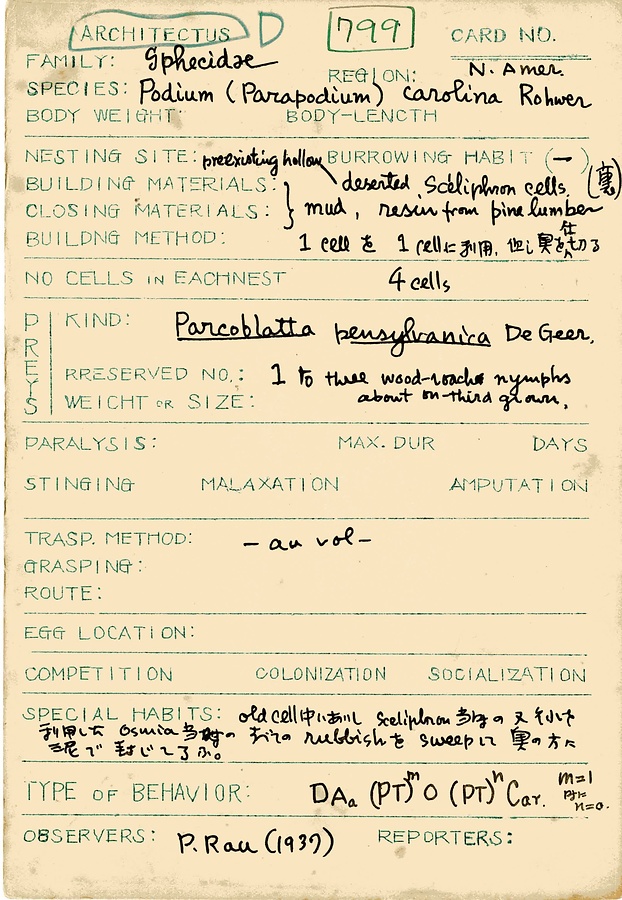 ARCHITECTUS D 799 CARD NO.
FAMILY: Sphecidae REGION: N. Amer.
SPECIES: Podium (Parapodium) carolina Rohwer
BODY WEIGHT: BODY-LENGTH
NESTING SITE: preexisting hollow BURROWING HABIT (—)
BUILDING MATERIALS: deserted Sceliphron cells. (裏)
CLOSING MATERIALS: mud, resin from pine lumber
BUILDNG METHOD: 1 cell を 1 cellに利用, 但し奥を仕切る
NO CELLS IN EACHNEST 4 cells
PREYS
KIND: Parcoblatta pensylvanica De Geer.
RRESERVED NO.: 1 to three wood-roaches nymphs
WEIGHT OR SIZE: about on-third grown.
PARALYSIS: MAX. DUR DAYS
STINGING MALAXATION AMPUTATION
TRASP. METHOD: - au vol -
GRASPING:
ROUTE:
EGG LOCATION:
COMPETITION COLONIZATION SOCIALIZATION
SPECIAL HABITS: old cell中において Sceliphron 当時の又それを
利用した Osmia 当時の rubbishを sweepして 奥の方に
泥で封じている。
TYPE OF BEHAVIOR: DAa (PT)m O (PT)n Car. m=1
n=0.
OBSERVERS: P. Rau (1937) REPORTERS: